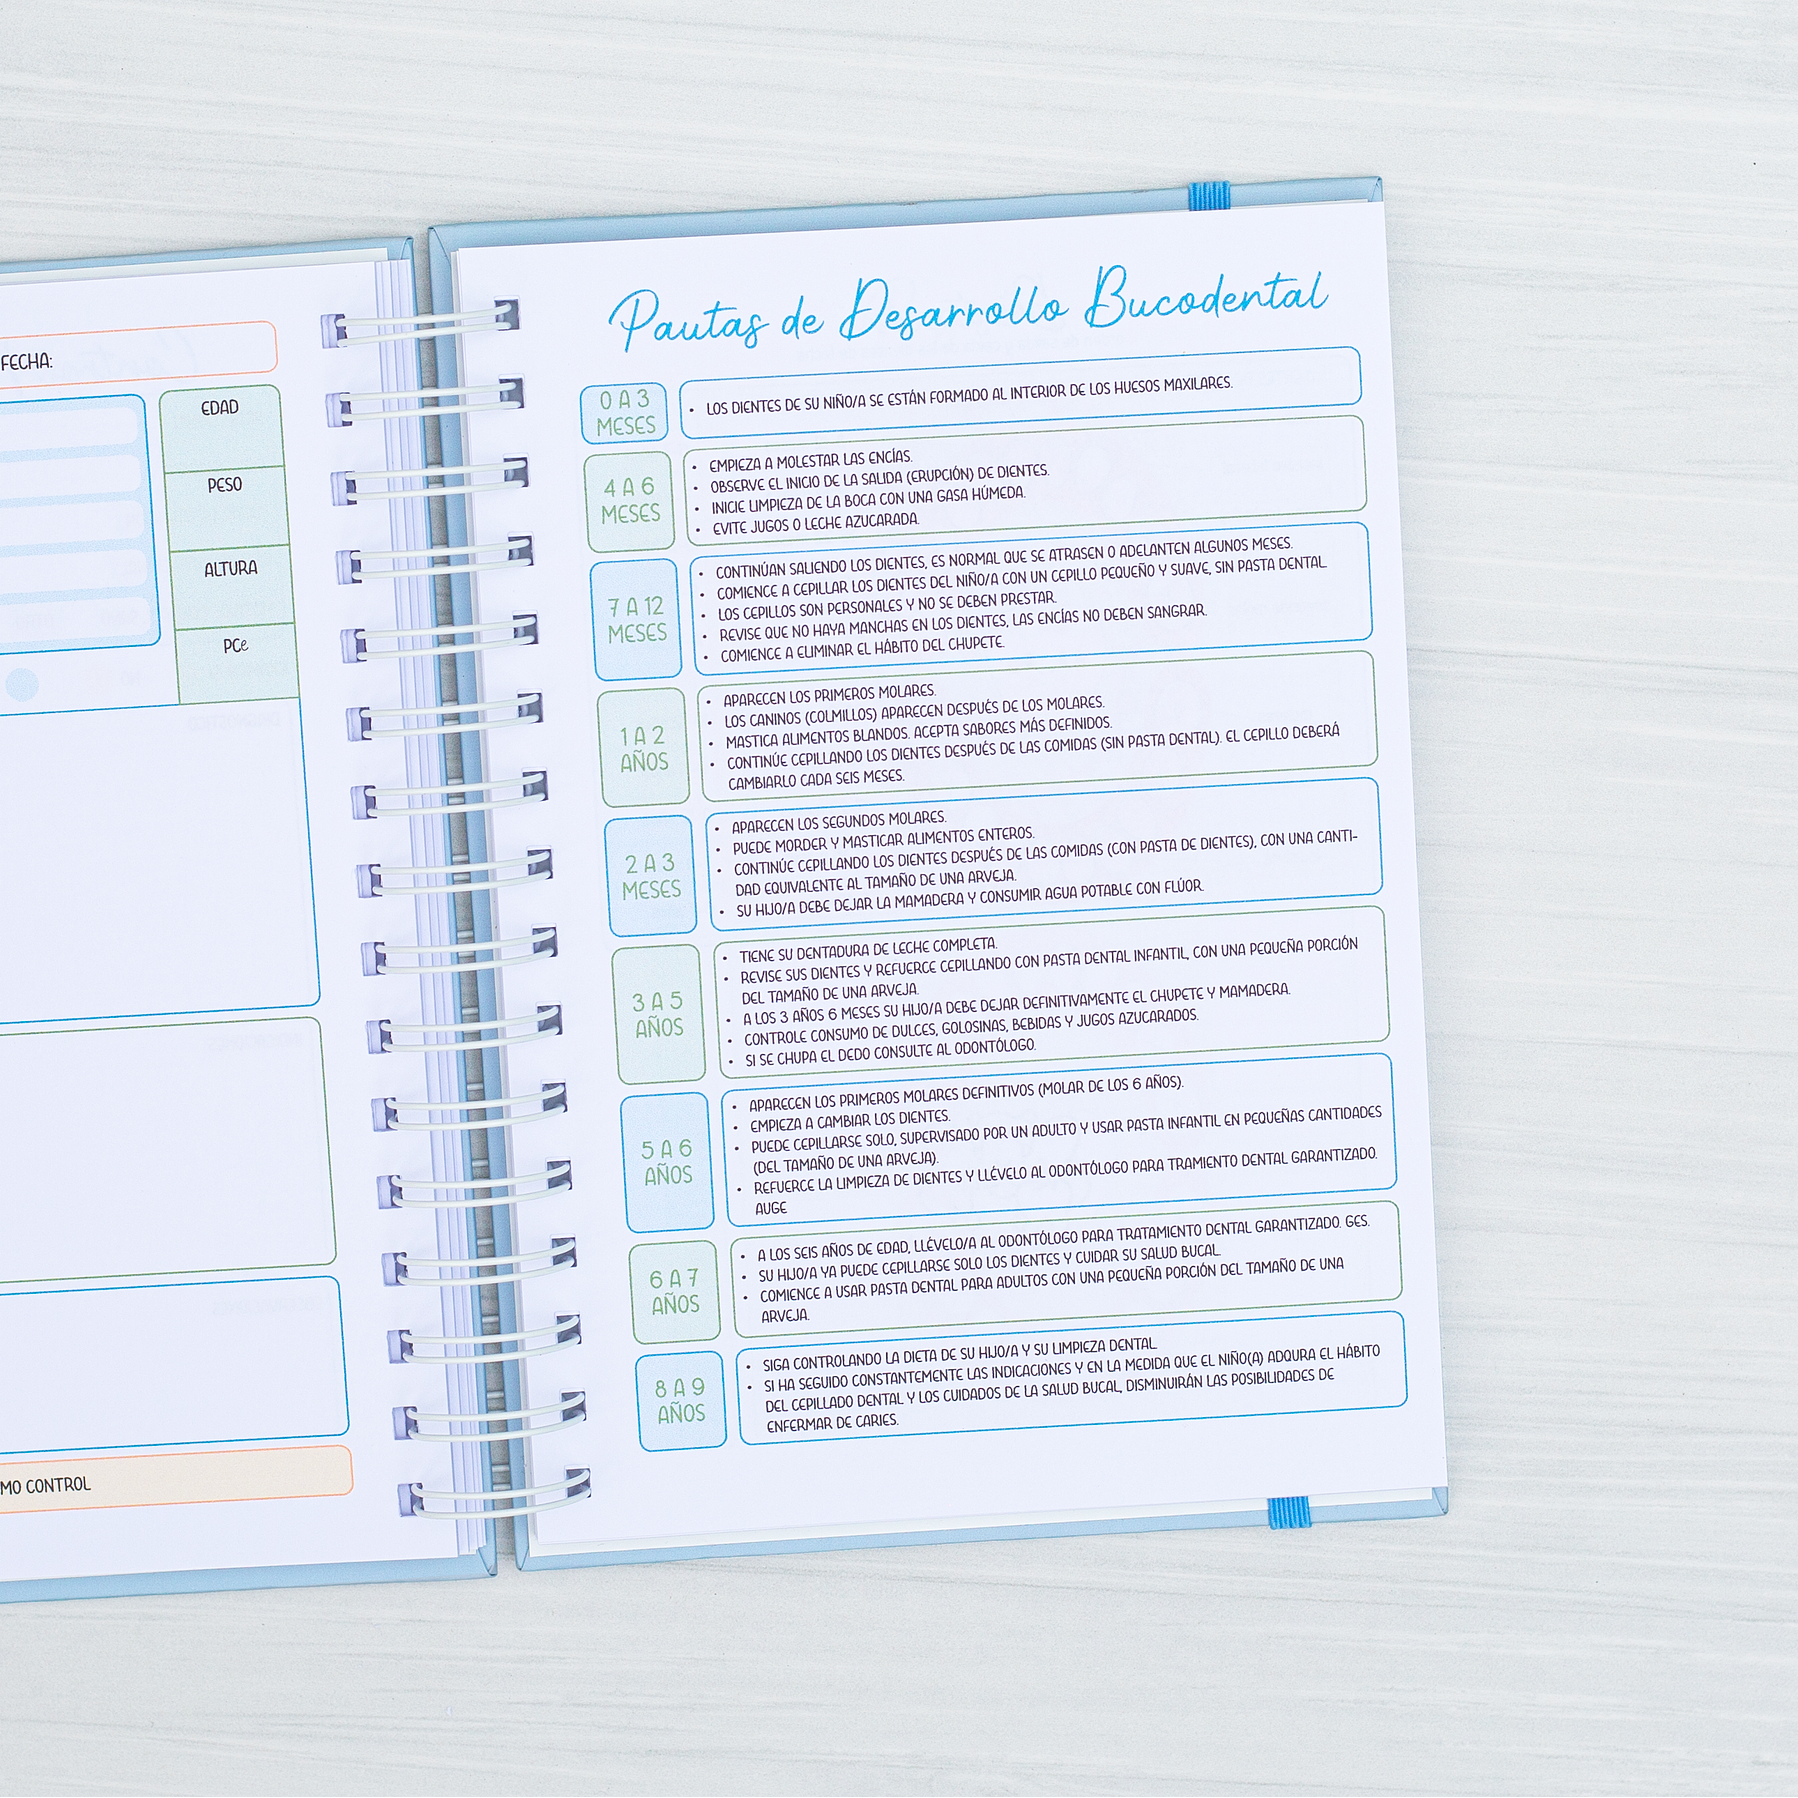 FECHA:
EDAD
PESO
ALTURA
PCe
MO CONTROL
Pautas de Desarrollo Bucodental
0 A 3
MESES
• LOS DIENTES DE SU NIÑO/A SE ESTÁN FORMADO AL INTERIOR DE LOS HUESOS MAXILARES.
4 A 6
MESES
• EMPIEZA A MOLESTAR LAS ENCÍAS.
• OBSERVE EL INICIO DE LA SALIDA (ERUPCIÓN) DE DIENTES.
• INICIE LIMPIEZA DE LA BOCA CON UNA GASA HÚMEDA.
• EVITE JUGOS O LECHE AZUCARADA.
7 A 12
MESES
• CONTINÚAN SALIENDO LOS DIENTES, ES NORMAL QUE SE ATRASEN O ADELANTEN ALGUNOS MESES.
• COMIENCE A CEPILLAR LOS DIENTES DEL NIÑO/A CON UN CEPILLO PEQUEÑO Y SUAVE, SIN PASTA DENTAL.
• LOS CEPILLOS SON PERSONALES Y NO SE DEBEN PRESTAR.
• REVISE QUE NO HAYA MANCHAS EN LOS DIENTES, LAS ENCÍAS NO DEBEN SANGRAR.
• COMIENCE A ELIMINAR EL HÁBITO DEL CHUPETE.
1 A 2
AÑOS
• APARECEN LOS PRIMEROS MOLARES.
• LOS CANINOS (COLMILLOS) APARECEN DESPUÉS DE LOS MOLARES.
• MASTICA ALIMENTOS BLANDOS. ACEPTA SABORES MÁS DEFINIDOS.
• CONTINÚE CEPILLANDO LOS DIENTES DESPUÉS DE LAS COMIDAS (SIN PASTA DENTAL). EL CEPILLO DEBERÁ
CAMBIARLO CADA SEIS MESES.
2 A 3
MESES
• APARECEN LOS SEGUNDOS MOLARES.
• PUEDE MORDER Y MASTICAR ALIMENTOS ENTEROS.
• CONTINÚE CEPILLANDO LOS DIENTES DESPUÉS DE LAS COMIDAS (CON PASTA DE DIENTES), CON UNA CANTI-
DAD EQUIVALENTE AL TAMAÑO DE UNA ARVEJA.
• SU HIJO/A DEBE DEJAR LA MAMADERA Y CONSUMIR AGUA POTABLE CON FLÚOR.
3 A 5
AÑOS
• TIENE SU DENTADURA DE LECHE COMPLETA.
• REVISE SUS DIENTES Y REFUERCE CEPILLANDO CON PASTA DENTAL INFANTIL, CON UNA PEQUEÑA PORCIÓN
DEL TAMAÑO DE UNA ARVEJA.
• A LOS 3 AÑOS 6 MESES SU HIJO/A DEBE DEJAR DEFINITIVAMENTE EL CHUPETE Y MAMADERA.
• CONTROLE CONSUMO DE DULCES, GOLOSINAS, BEBIDAS Y JUGOS AZUCARADOS.
• SI SE CHUPA EL DEDO CONSULTE AL ODONTÓLOGO.
5 A 6
AÑOS
• APARECEN LOS PRIMEROS MOLARES DEFINITIVOS (MOLAR DE LOS 6 AÑOS).
• EMPIEZA A CAMBIAR LOS DIENTES.
• PUEDE CEPILLARSE SOLO, SUPERVISADO POR UN ADULTO Y USAR PASTA INFANTIL EN PEQUEÑAS CANTIDADES
(DEL TAMAÑO DE UNA ARVEJA).
• REFUERCE LA LIMPIEZA DE DIENTES Y LLÉVELO AL ODONTÓLOGO PARA TRAMIENTO DENTAL GARANTIZADO.
AUGE
6 A 7
AÑOS
• A LOS SEIS AÑOS DE EDAD, LLÉVELO/A AL ODONTÓLOGO PARA TRATAMIENTO DENTAL GARANTIZADO. GES.
• SU HIJO/A YA PUEDE CEPILLARSE SOLO LOS DIENTES Y CUIDAR SU SALUD BUCAL.
• COMIENCE A USAR PASTA DENTAL PARA ADULTOS CON UNA PEQUEÑA PORCIÓN DEL TAMAÑO DE UNA
ARVEJA.
8 A 9
AÑOS
• SIGA CONTROLANDO LA DIETA DE SU HIJO/A Y SU LIMPIEZA DENTAL.
• SI HA SEGUIDO CONSTANTEMENTE LAS INDICACIONES Y EN LA MEDIDA QUE EL NIÑO(A) ADQURA EL HÁBITO
DEL CEPILLADO DENTAL Y LOS CUIDADOS DE LA SALUD BUCAL, DISMINUIRÁN LAS POSIBILIDADES DE
ENFERMAR DE CARIES.